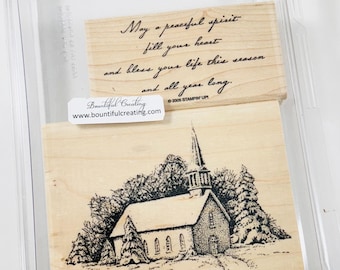 May a peaceful spirit
fill your heart
and bless your life this season
and all year long.
© 2005 STAMPIN' UP!
Bountiful Creating
www.bountifulcreating.com